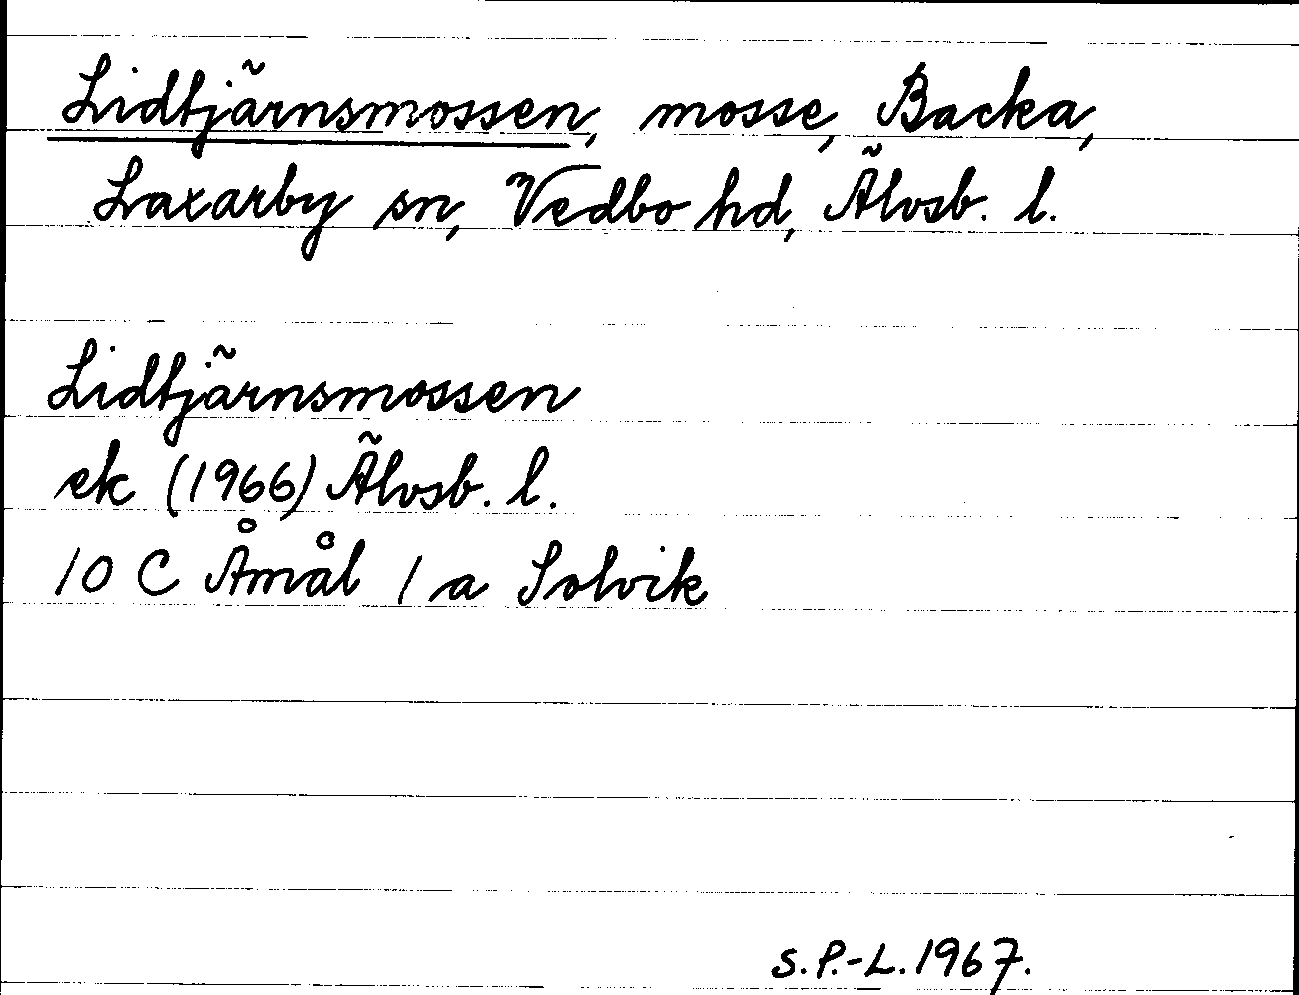 Lidtjärnsmossen, mosse, Backa,
Laxarby sn, Vedbo hd, Älvsb. l.
Lidtjärnsmossen
ek (1966) Älvsb. l.
10 C Åmål 1 a Solvik
S. P.-L. 1967.